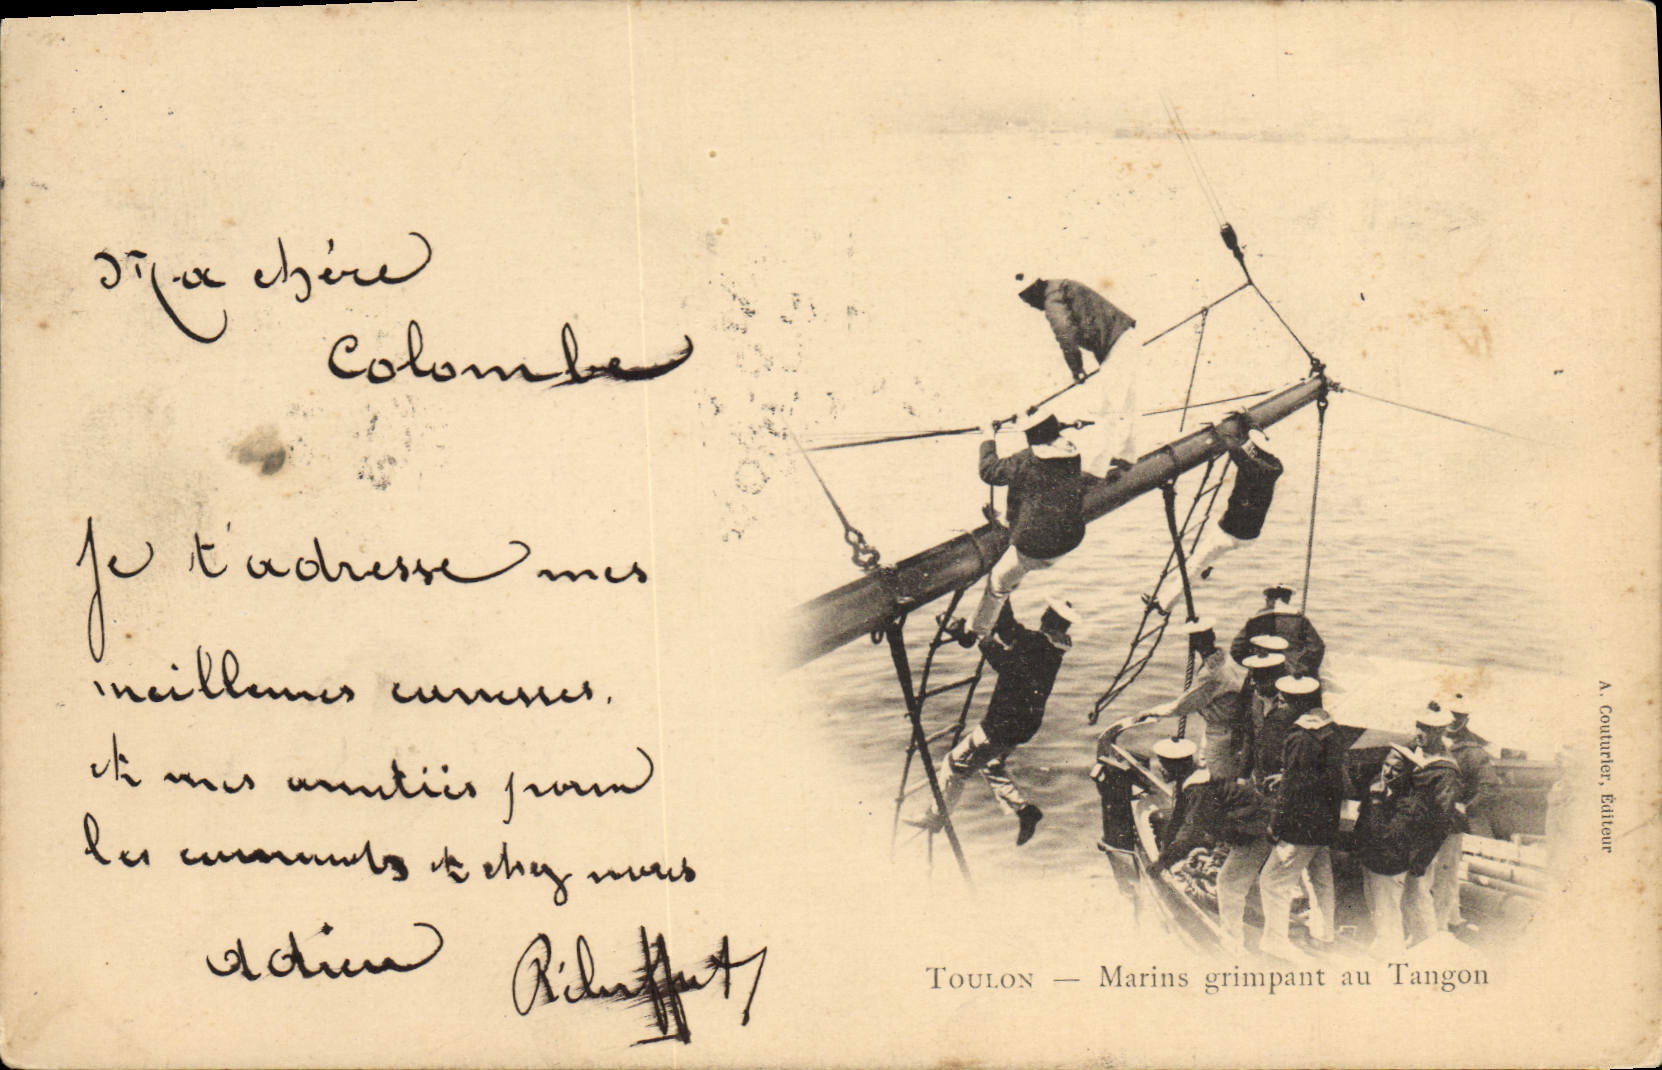 Ma chère
Colombe
Je t'adresse mes
meilleures caresses.
et mes amitiés pour
les et chez
adieu
TOULON — Marins grimpant au Tangon
A. Couturier, Éditeur